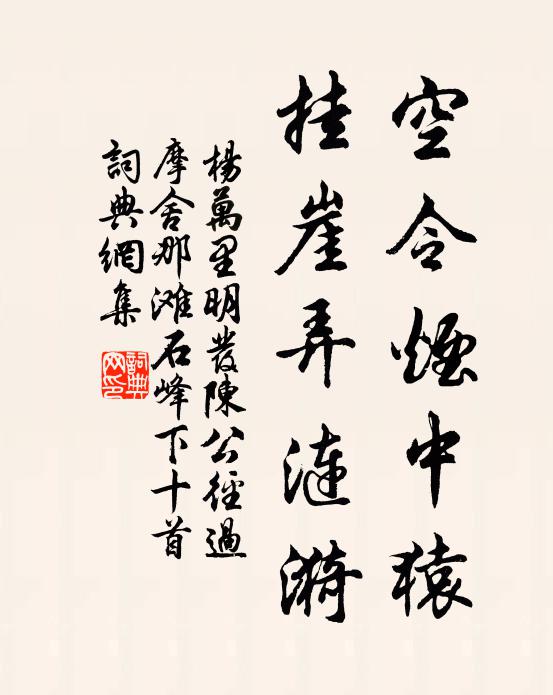 空令煙中猿
挂崖弄漣漪
楊萬里明發陳公徑過
摩舍那滩石峰下十首
詞典網集
詞典網印